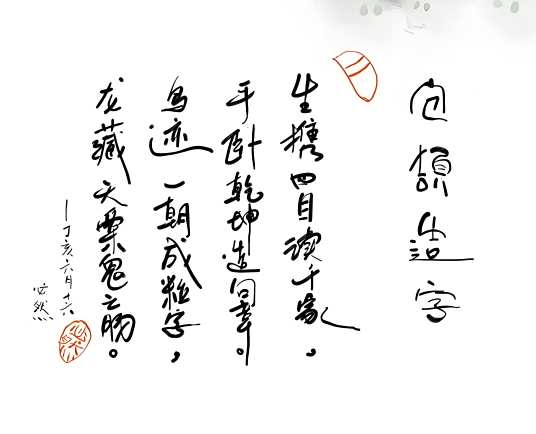 仓頡造字
生携四目读千象，
平卧乾坤造。
鸟迹一朝成粒字，
龙藏天粟鬼之肠。
丁亥六月十六
必然